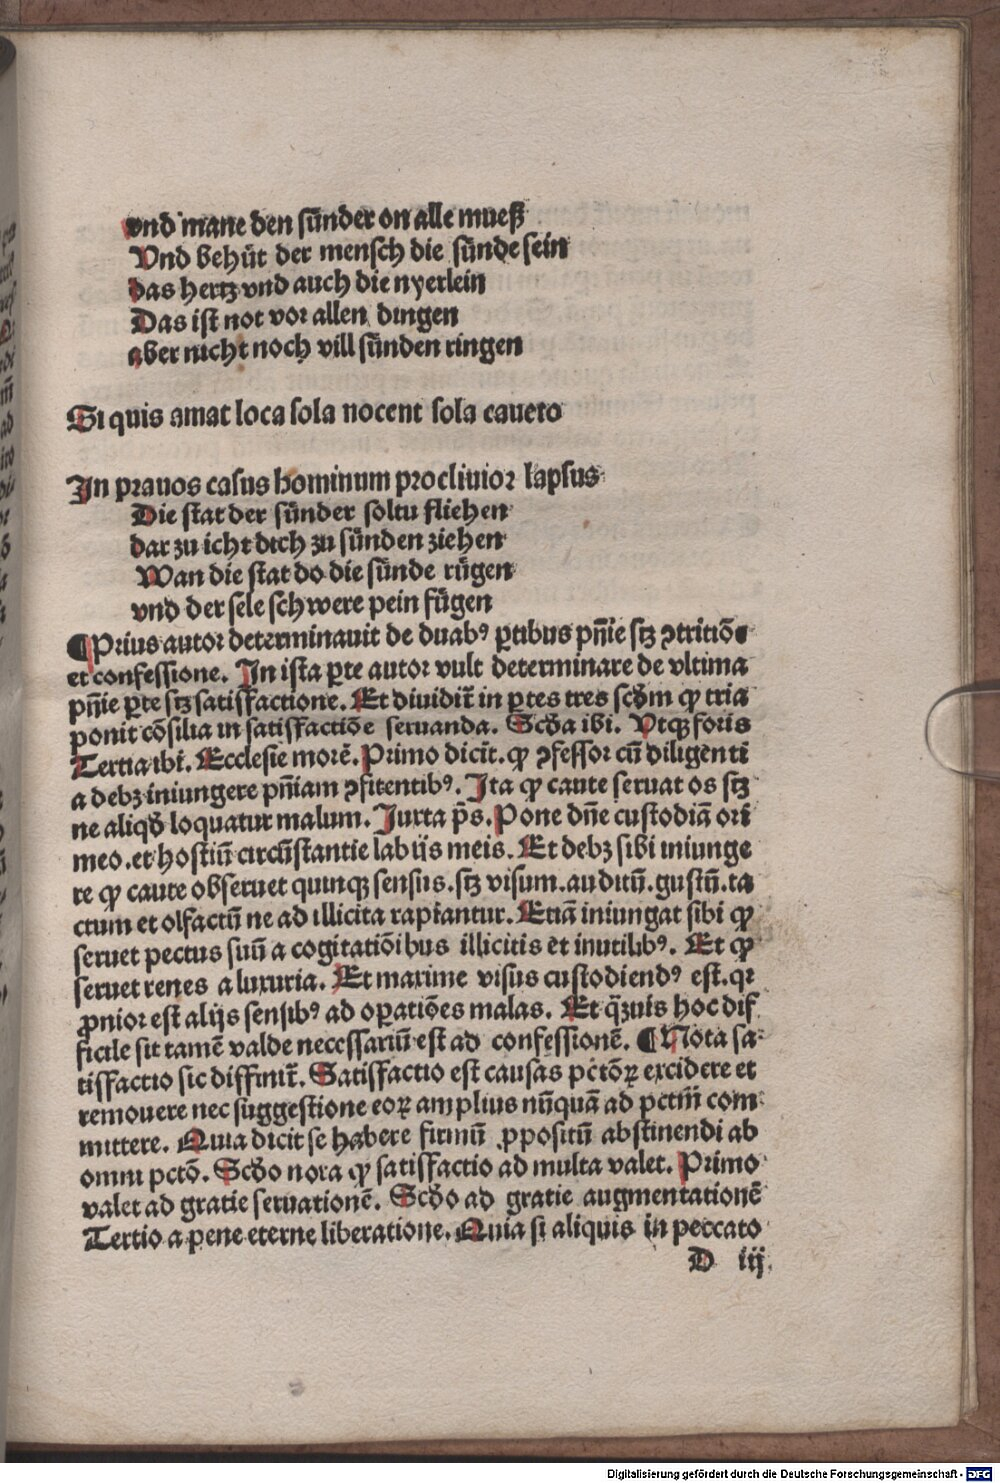 vnd mane den sünder on alle mueß
Vnd behüt der mensch die sünde sein
das hertz vnd auch die nyerlein
Das ist not vor allen dingen
aber nicht noch vill sünden ringen
Si quis amat loca sola nocent sola caueto
In prauos casus hominum procliuior lapsus
Die stat der sünder soltu fliehen
dar zu icht dich zu sünden ziehen
Wan die stat do die sünde rügen
vnd der sele schwere pein fügen
¶Prius autor determinauit de duabꝰ ꝑtibus pn̄ie sꝫ ꝯtritiōe
et confessione. In ista ꝑte autor vult determinare de vltima
pn̄ie ꝑte sꝫ satisfactione. Et diuidit̄ in ꝑtes tres scd̄m ꝙ tria
ponit cōsilia in satisfactiōe seruanda. Scd̄a ibi. Vtqꝫ foris
Tertia ibi. Ecclesie morē. Primo dicit. ꝙ ꝯfessor cū diligenti
a debꝫ iniungere pn̄iam ꝯfitentibꝰ. Ita ꝙ caute seruat os sꝫ
ne aliqd̄ loquatur malum. Iuxta p̄s. Pone dn̄e custodiā ori
meo. et hostiū circūstantie labijs meis. Et debꝫ sibi iniunge
re ꝙ caute obseruet quinqꝫ sensus. sꝫ visum. auditū. gustū. ta
ctum et olfactū ne ad illicita rapiantur. Etiā iniungat sibi ꝙ
seruet pectus suū a cogitatiōibus illicitis et inutilibꝰ. Et ꝙ
seruet renes a luxuria. Et maxime visus custodiendꝰ est. qꝛ
ꝓnior est alijs sensibꝰ ad oꝑatiōes malas. Et q̄zuis hoc dif
ficile sit tamē valde necessariū est ad confessionē. ¶Nota sa
tisfactio sic diffinit̄. Satisfactio est causas pctōꝝ excidere et
remouere nec suggestione eoꝝ amplius nūquā ad pctm̄ com
mittere. Quia dicit se habere firmū ꝓpositū abstinendi ab
omni pctō. Scd̄o nota ꝙ satisfactio ad multa valet. Primo
valet ad gratie seruationē. Scd̄o ad gratie augmentationē
Tertio a pene eterne liberatione. Quia si aliquis in peccato
D iij
Digitalisierung gefördert durch die Deutsche Forschungsgemeinschaft - DFG